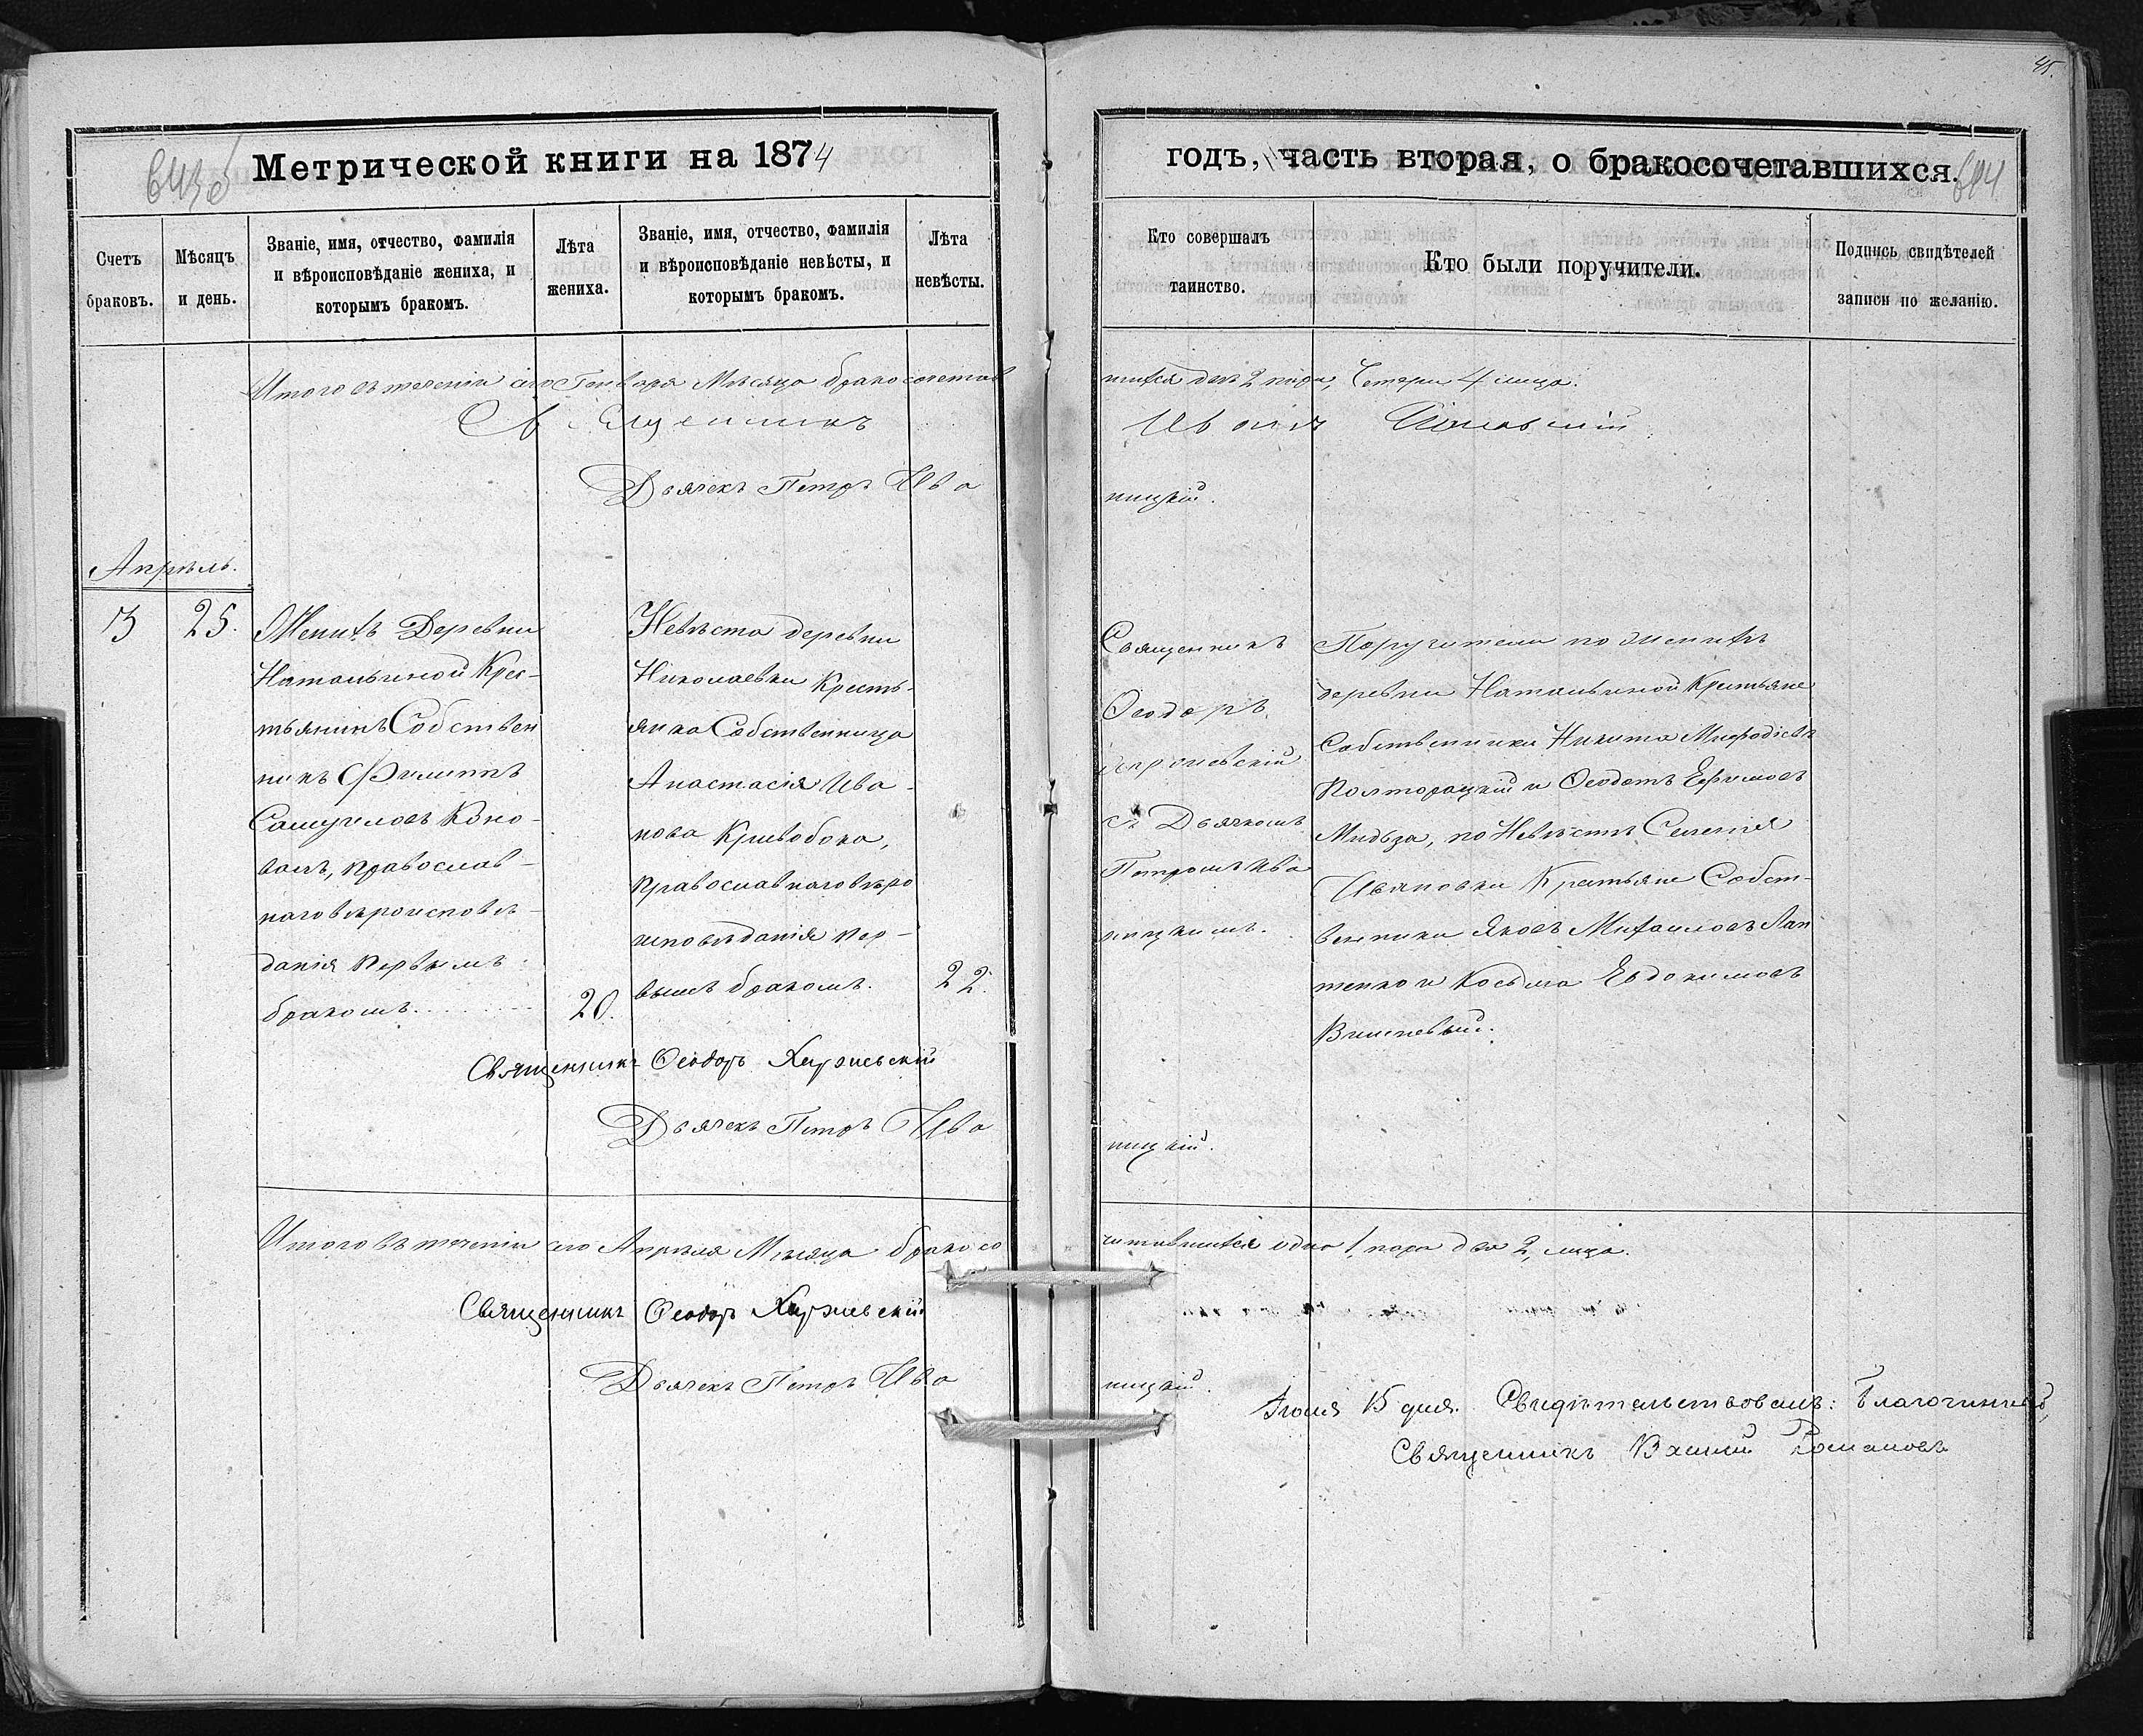 45.
Метрической книги на 1874
годъ, часть вторая, о бракосочетавшихся.
Счетъ браковъ.
Мѣсяцъ и день.
Званіе, имя, отчество, фамилія
и вѣроисповѣданіе жениха, и
которымъ бракомъ.
Лѣта
жениха.
Званіе, имя, отчество, фамилія
и вѣроисповѣданіе невѣсты, и
которымъ бракомъ.
Лѣта
невѣсты.
Кто совершалъ
таинство.
Кто были поручители.
Подпись свидѣтелей
записи по желанію.
Итого въ теченіи сего Генваря Мѣсяца бракосочетав
шихся двѣ 2 пары, Четыре 4 лица.
Священникъ
Дьячекъ Петръ Ива
ницкій.
Апрѣль.
3
25.
Женихъ Деревни
Натальиной Крес-
тьянинъ Собствен
никъ Филиппъ
Самуиловъ Коно-
валъ, православ-
наго вѣроисповѣ-
данія первымъ
бракомъ.
20.
Невѣста деревни
Николаевки Кресть-
янка Собственница
Анастасія Ива-
нова Кривобока,
православнаго вѣро
исповѣданія пер-
вымъ бракомъ.
22.
Священникъ
Ѳеодоръ
съ Дьячкомъ
Петромъ Ива
ницкимъ.
Поручители по женихѣ
деревни Натальиной Крестьяне
Собственники Никита Мефодіевъ
Полторацкій и Ѳеодотъ Ефимовъ
по Невѣстѣ Селенія
Ивановки Крестьяне Собст-
венники Яковъ Михаиловъ Лап
тенко и Косьма Евдокимовъ
Вишневый.
Священникъ Ѳеодоръ
Дьячекъ Петръ Ива
ницкій.
Итого въ теченіи сего Апрѣля Мѣсяца бракосо
четавшихся одна 1 пара два 2, лица.
Священникъ Ѳеодоръ
Дьячекъ Петръ Ива
ницкій.
15 дня. Свидѣтельствовалъ: Благочинный,
Священникъ Романовъ